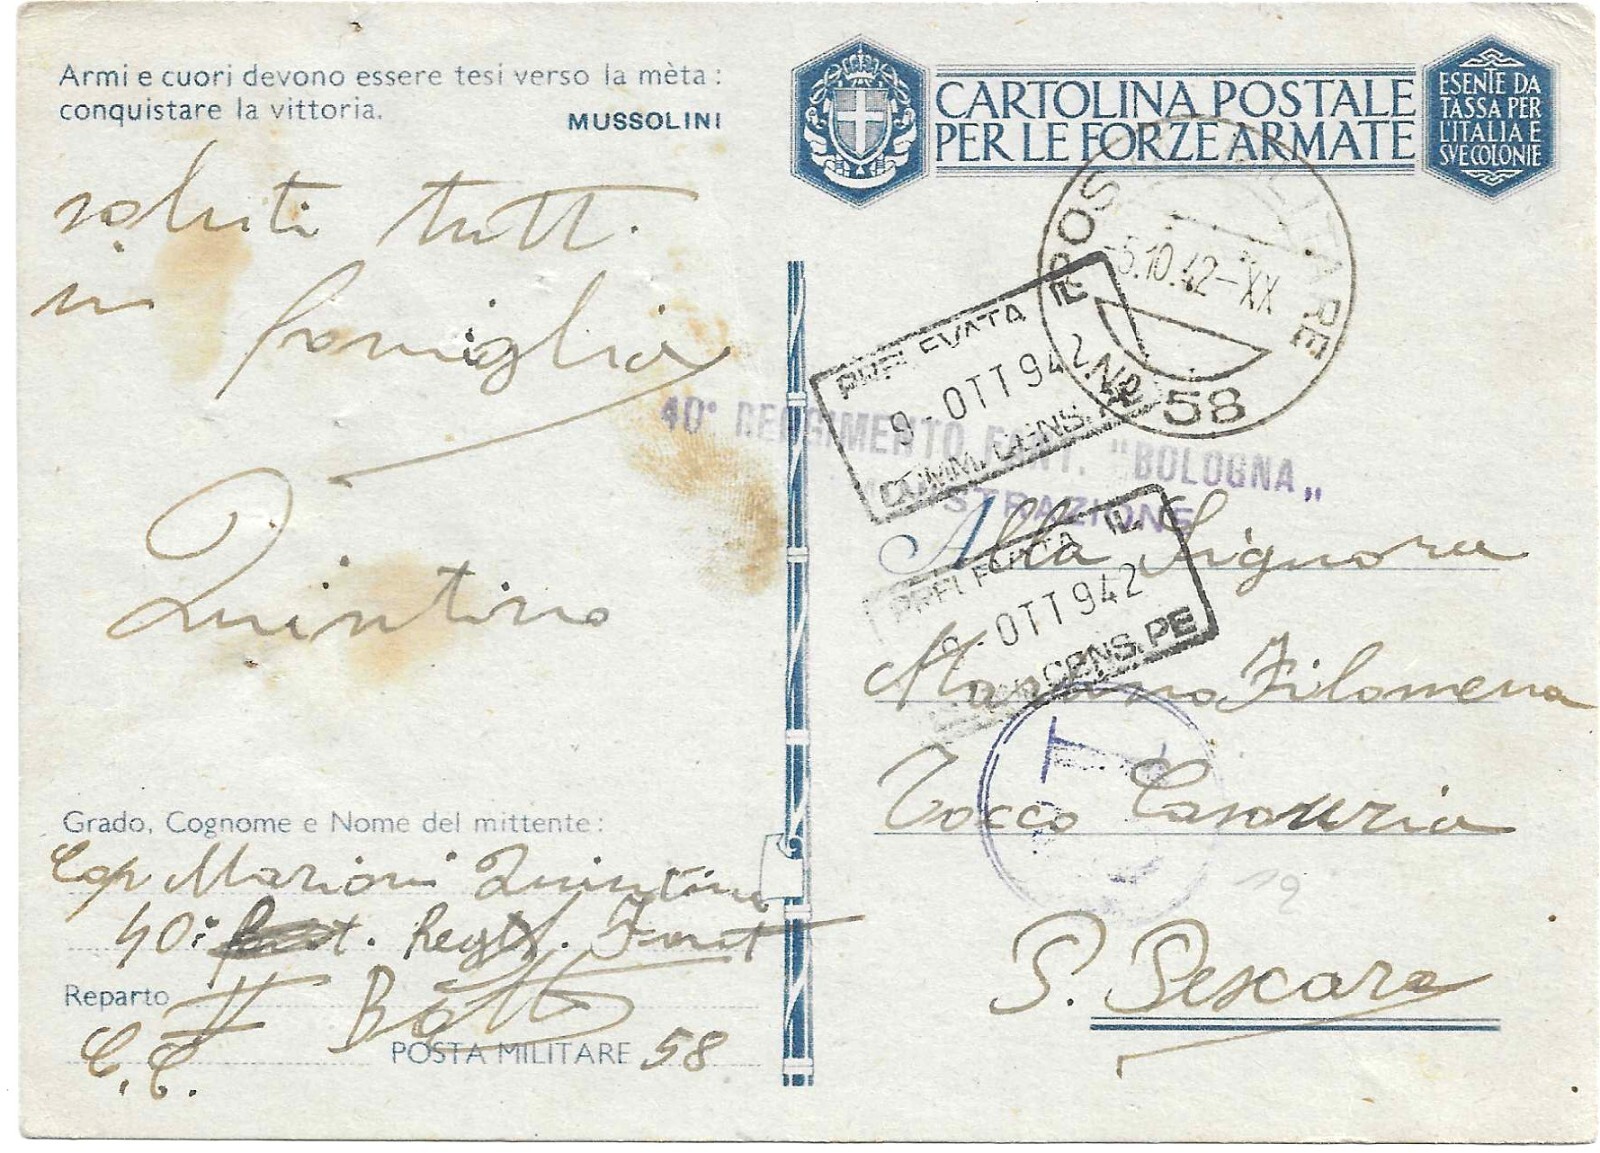 Armi e cuori devono essere tesi verso la mèta:
conquistare la vittoria.
MUSSOLINI
saluti tutti
in famiglia
Quintino
Grado, Cognome e Nome del mittente:
Cap Marioni Quintino
40° Regt. Fant
Reparto II Batt
C. C. POSTA MILITARE 58
CARTOLINA POSTALE
PER LE FORZE ARMATE
ESENTE DA
TASSA PER
L'ITALIA E
SVE COLONIE
POSTA MILITARE
-5.10.42-XX
N° 58
PRELEVATA IL
9-OTT 942
COMM. CENS. PE
40° REGGIMENTO FANT. "BOLOGNA"
Alla Signora
PRELEVATA IL
9-OTT 942
CENS. PE
Filomena
Tocco Casauria
12
P. Pescara